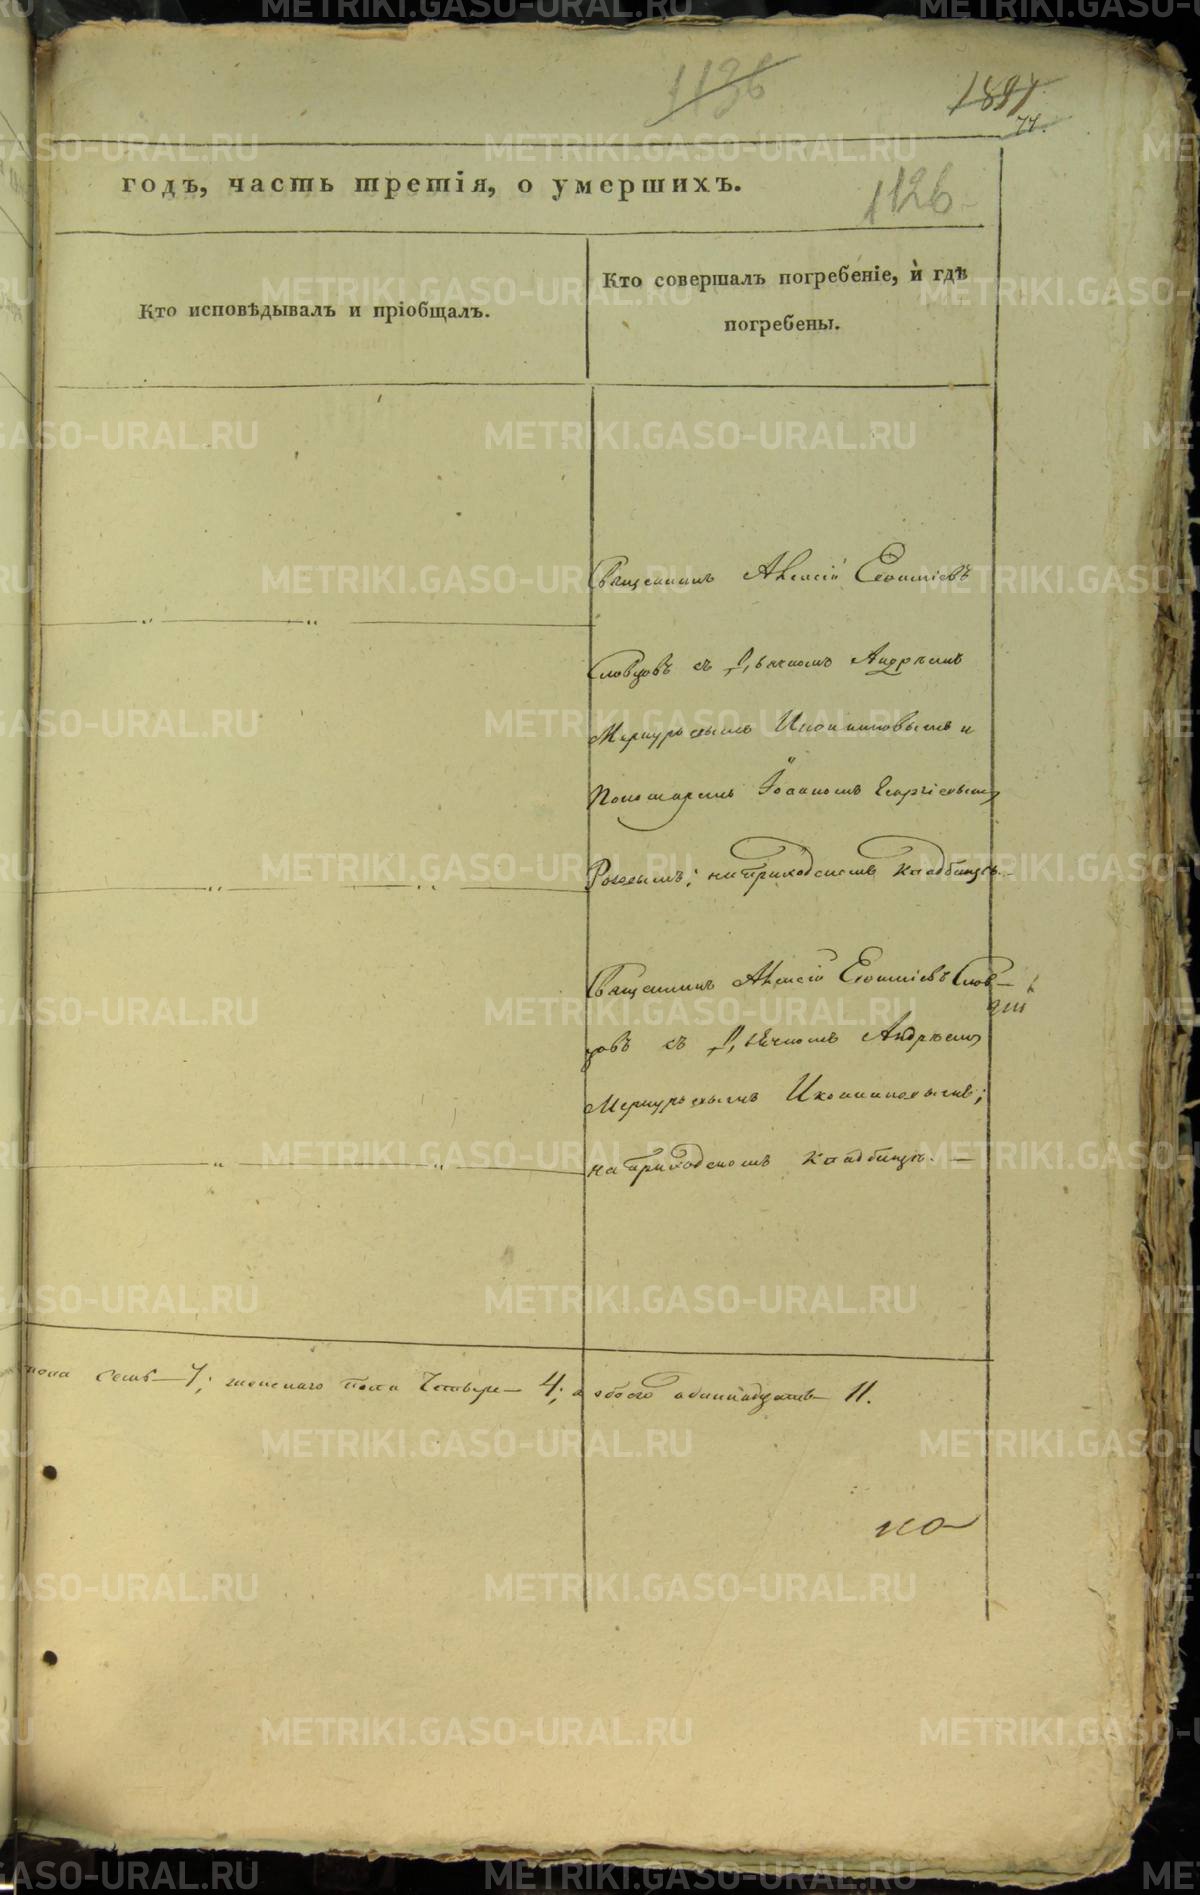 1136
1897
77.
годъ, часть третія, о умершихъ.
1126
Кто исповѣдывалъ и пріобщалъ.
Кто совершалъ погребеніе, и гдѣ
погребены.
Священникъ Алексій
Словцовъ съ Дьячкомъ Андреемъ
Меркурьевымъ Иконниковымъ и
Пономаремъ Іоанномъ Георгіевымъ
на приходскомъ кладбищѣ.
Священникъ Алексій Слов-
цовъ съ Дьячкомъ Андреемъ
Меркурьевымъ Иконниковымъ;
на приходскомъ кладбищѣ. —
пола семь — 7; женскаго пола четыре — 4; а обоего одиннадцать — 11.
METRIKI.GASO-URAL.RU